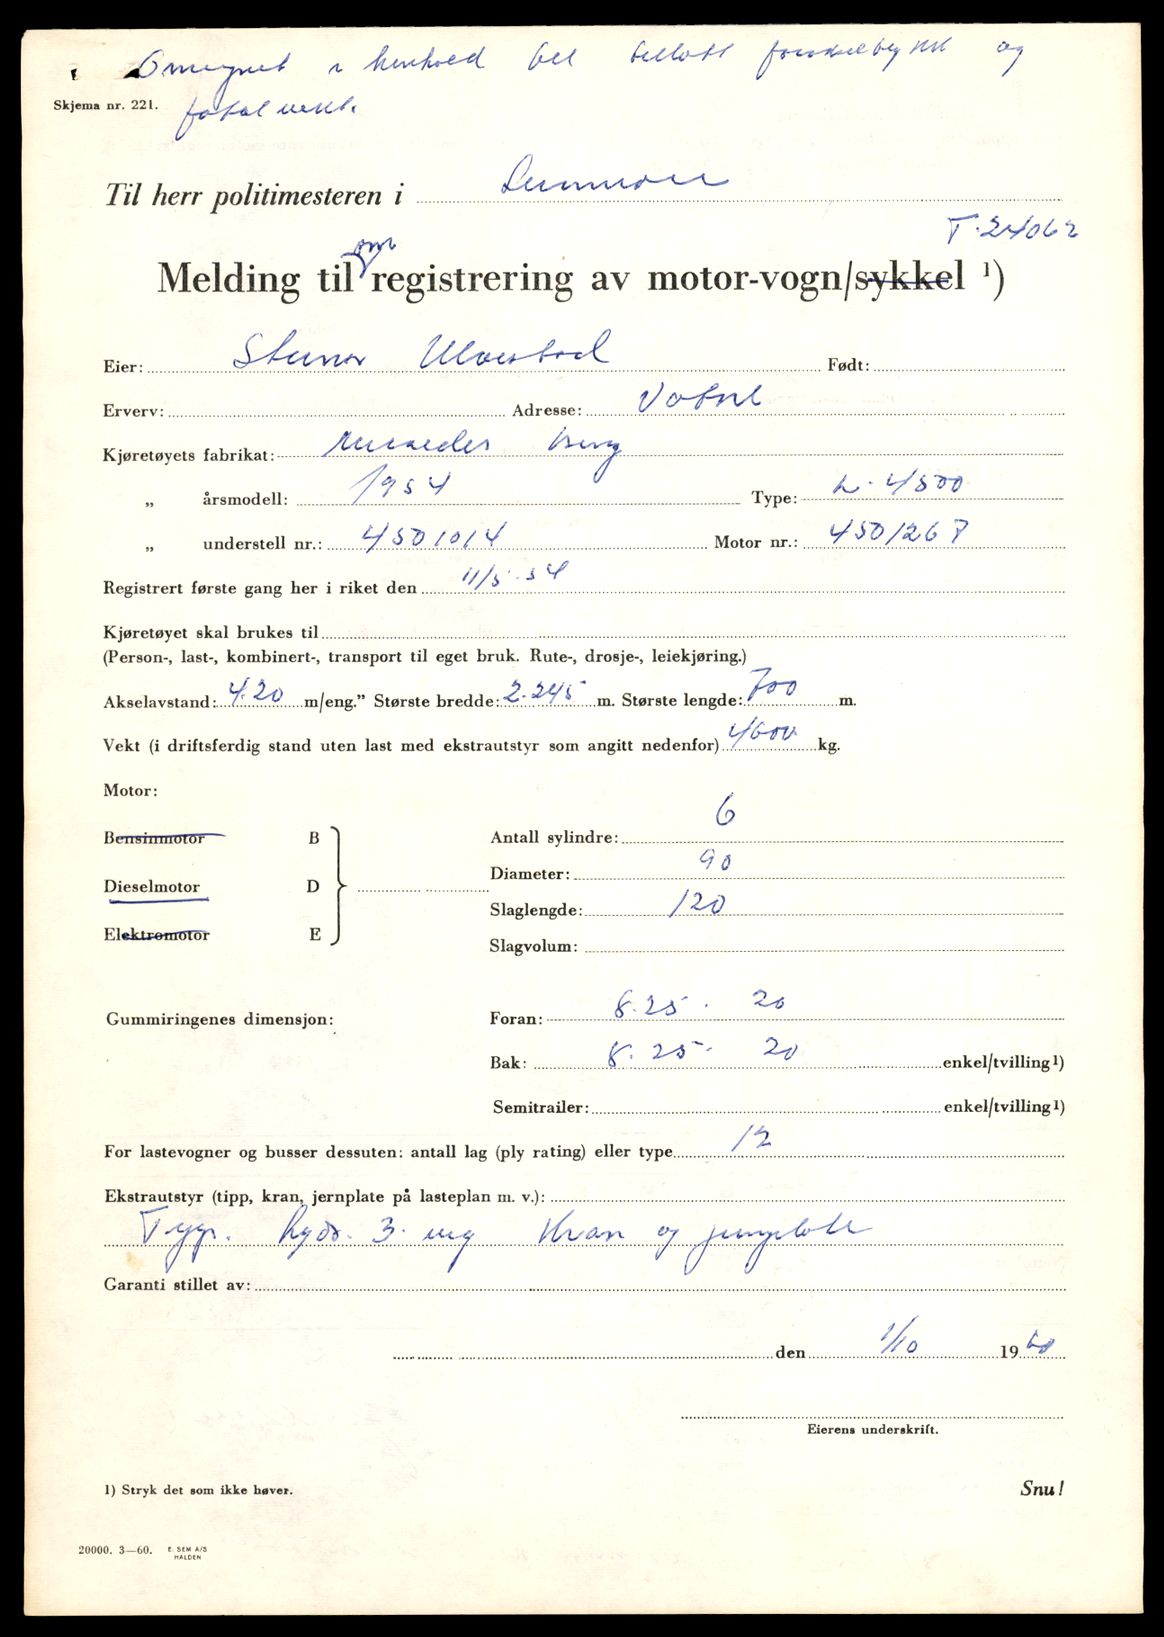 Omregnet i henhold til tillatt forakseltrykk og
Skjema nr. 221.
totalvekt.
Til herr politimesteren i Sunnmøre
T-24062
om
Melding til registrering av motor-vogn/sykkel ¹)
Eier: Steinar Ulvestad Født:
Erverv: Adresse: Vatne
Kjøretøyets fabrikat: Mercedes Benz
„ årsmodell: 1954 Type: L. 4500
„ understell nr.: 4501014 Motor nr.: 4501268
Registrert første gang her i riket den 11/5-54
Kjøretøyet skal brukes til
(Person-, last-, kombinert-, transport til eget bruk. Rute-, drosje-, leiekjøring.)
Akselavstand: 4.20 m/eng.” Største bredde: 2.245 m. Største lengde: 700 m.
Vekt (i driftsferdig stand uten last med ekstrautstyr som angitt nedenfor) 4600 kg.
Motor:
Bensinmotor B Antall sylindre: 6
Diameter: 90
Dieselmotor D
Slaglengde: 120
Elektromotor E
Slagvolum:
Gummiringenes dimensjon: Foran: 8.25 - 20
Bak: 8.25- 20 enkel/tvilling¹)
Semitrailer: enkel/tvilling¹)
For lastevogner og busser dessuten: antall lag (ply rating) eller type 12
Ekstrautstyr (tipp, kran, jernplate på lasteplan m. v.):
Typp. hydr. 3. veg Kran og jernplate
Garanti stillet av:
den 1/10 1960
Eierens underskrift.
1) Stryk det som ikke høver.
Snu!
20000. 3—60. E. SEM A/S
HALDEN